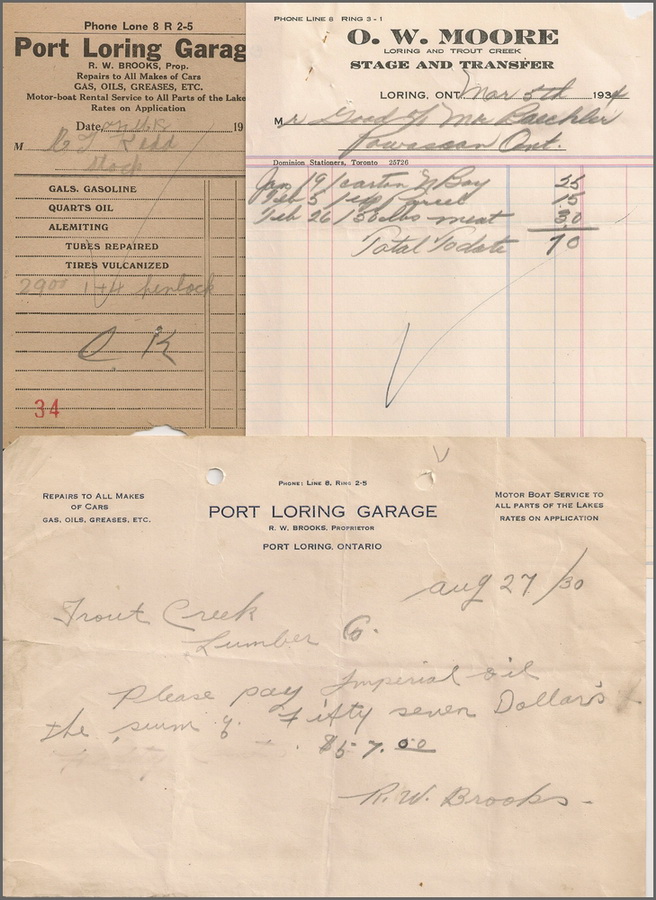 Phone Lone 8 R 2-5
Port Loring Garag
R. W. BROOKS, Prop.
Repairs to All Makes of Cars
GAS, OILS, GREASES, ETC.
Motor-boat Rental Service to All Parts of the Lake
Rates on Application
Date 19
M
Stock
GALS. GASOLINE
QUARTS OIL
ALEMITING
TUBES REPAIRED
TIRES VULCANIZED
O K
34
PHONE LINE 8 RING 3-1
O. W. MOORE
LORING AND TROUT CREEK
STAGE AND TRANSFER
LORING, ONT. Mar 5th 1934
Mr
Powassan Ont.
Dominion Stationers, Toronto 25726
Jan 19 1 carton 25
Feb 5 1 15
Feb 26 1 30 lbs meat 30
Total To date 70
PHONE: LINE 8, RING 2-5
REPAIRS TO ALL MAKES
OF CARS
GAS, OILS, GREASES, ETC.
PORT LORING GARAGE
R. W. BROOKS, PROPRIETOR
PORT LORING, ONTARIO
MOTOR BOAT SERVICE TO
ALL PARTS OF THE LAKES
RATES ON APPLICATION
Aug 27/30
Trout Creek
Lumber Co.
Please pay Imperial oil
the sum of Fifty seven Dollars
$57.00
R. W. Brooks